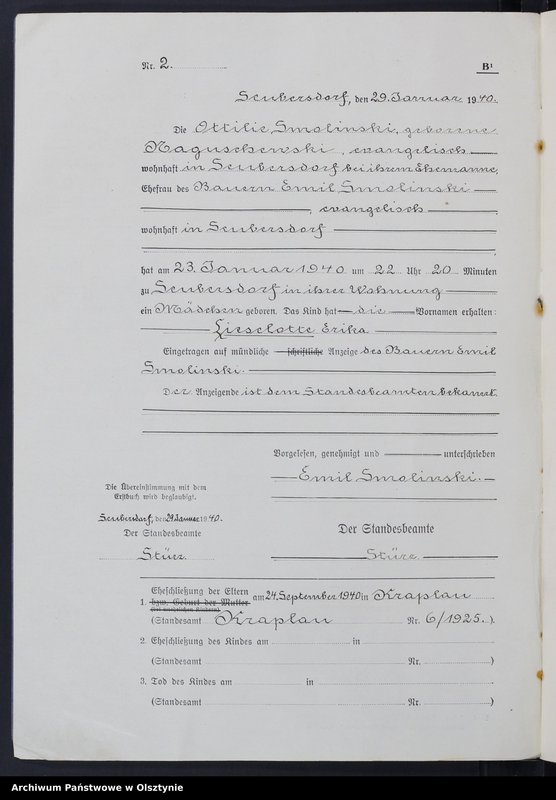 Nr. 2.
B¹
Seubersdorf, den 29. Januar 1940.
Die Ottilie Smolinski, geborene
Naguschewski, evangelisch
wohnhaft in Seubersdorf bei ihrem Ehemanne,
Ehefrau des Bauern Emil Smolinski
, evangelisch
wohnhaft in Seubersdorf
hat am 23. Januar 1940 um 22 Uhr 20 Minuten
zu Seubersdorf in ihrer Wohnung
ein Mädchen geboren. Das Kind hat die Vornamen erhalten:
Lieselotte Erika
Eingetragen auf mündliche schriftliche Anzeige des Bauern Emil
Smolinski.
Der Anzeigende ist dem Standesbeamten bekannt.
Vorgelesen, genehmigt und unterschrieben
Emil Smolinski.
Die Übereinstimmung mit dem
Erstbuch wird beglaubigt.
Seubersdorf, den 29. Januar 1940.
Der Standesbeamte
Stürz.
Der Standesbeamte
Stürz.
1. Eheschließung der Eltern am 24. September 1940 in Kraplau
bzw. Geburt der Mutter
(Standesamt Kraplau Nr. 6/1925.)
2. Eheschließung des Kindes am in
(Standesamt Nr. )
3. Tod des Kindes am in
(Standesamt Nr. )
Archiwum Państwowe w Olsztynie